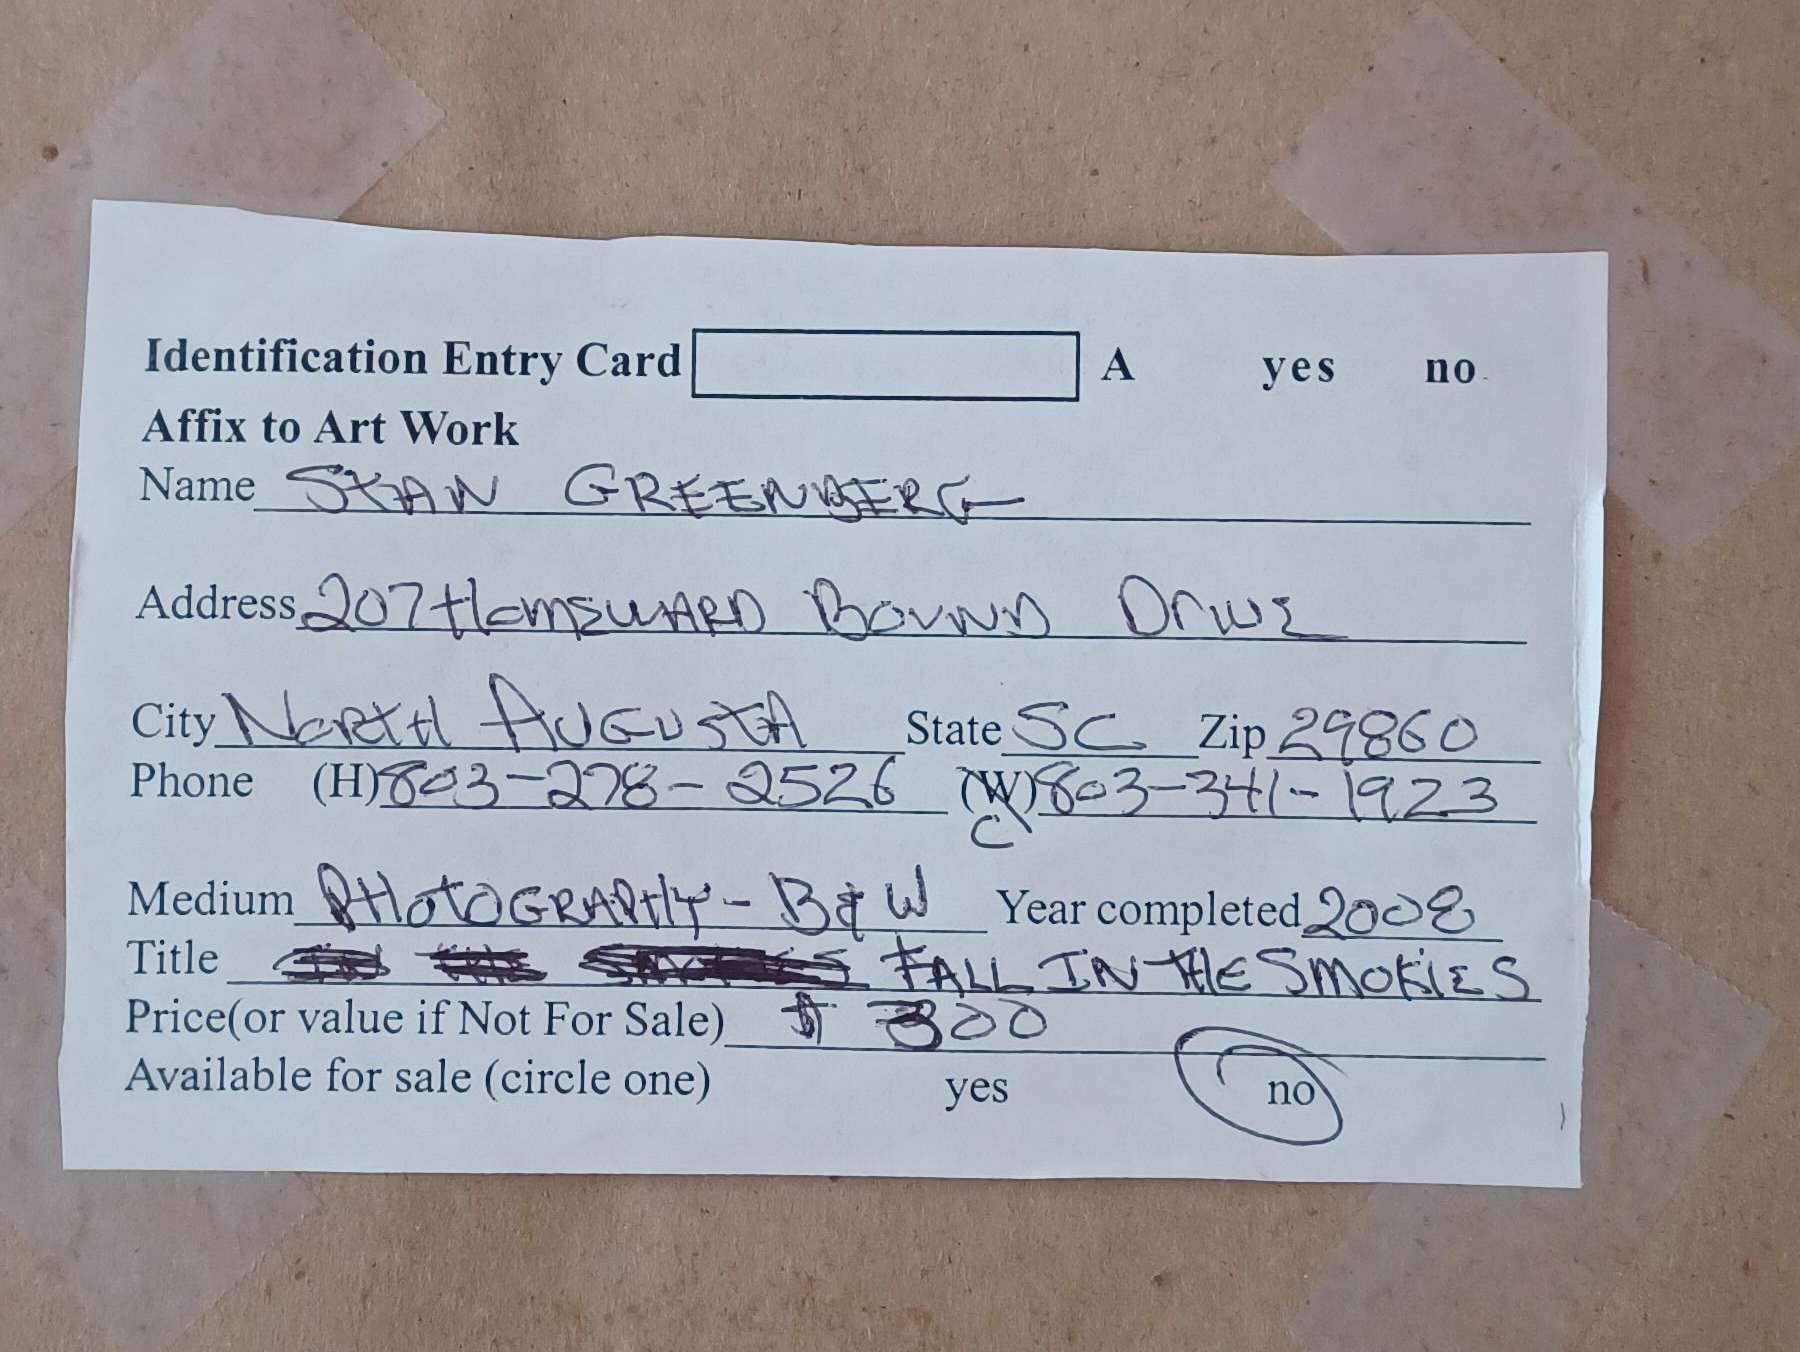 Identification Entry Card A yes no
Affix to Art Work
Name STAN GREENBERG
Address 207 HOMEWARD BOUND Drive
City NORTH AUGUSTA State SC Zip 29860
Phone (H) 803-278-2526 (W) 803-341-1923
C
Medium PHOTOGRAPHY - B & W Year completed 2008
Title IN THE SMOKIES FALL IN THE SMOKIES
Price(or value if Not For Sale) $ 300
Available for sale (circle one) yes no